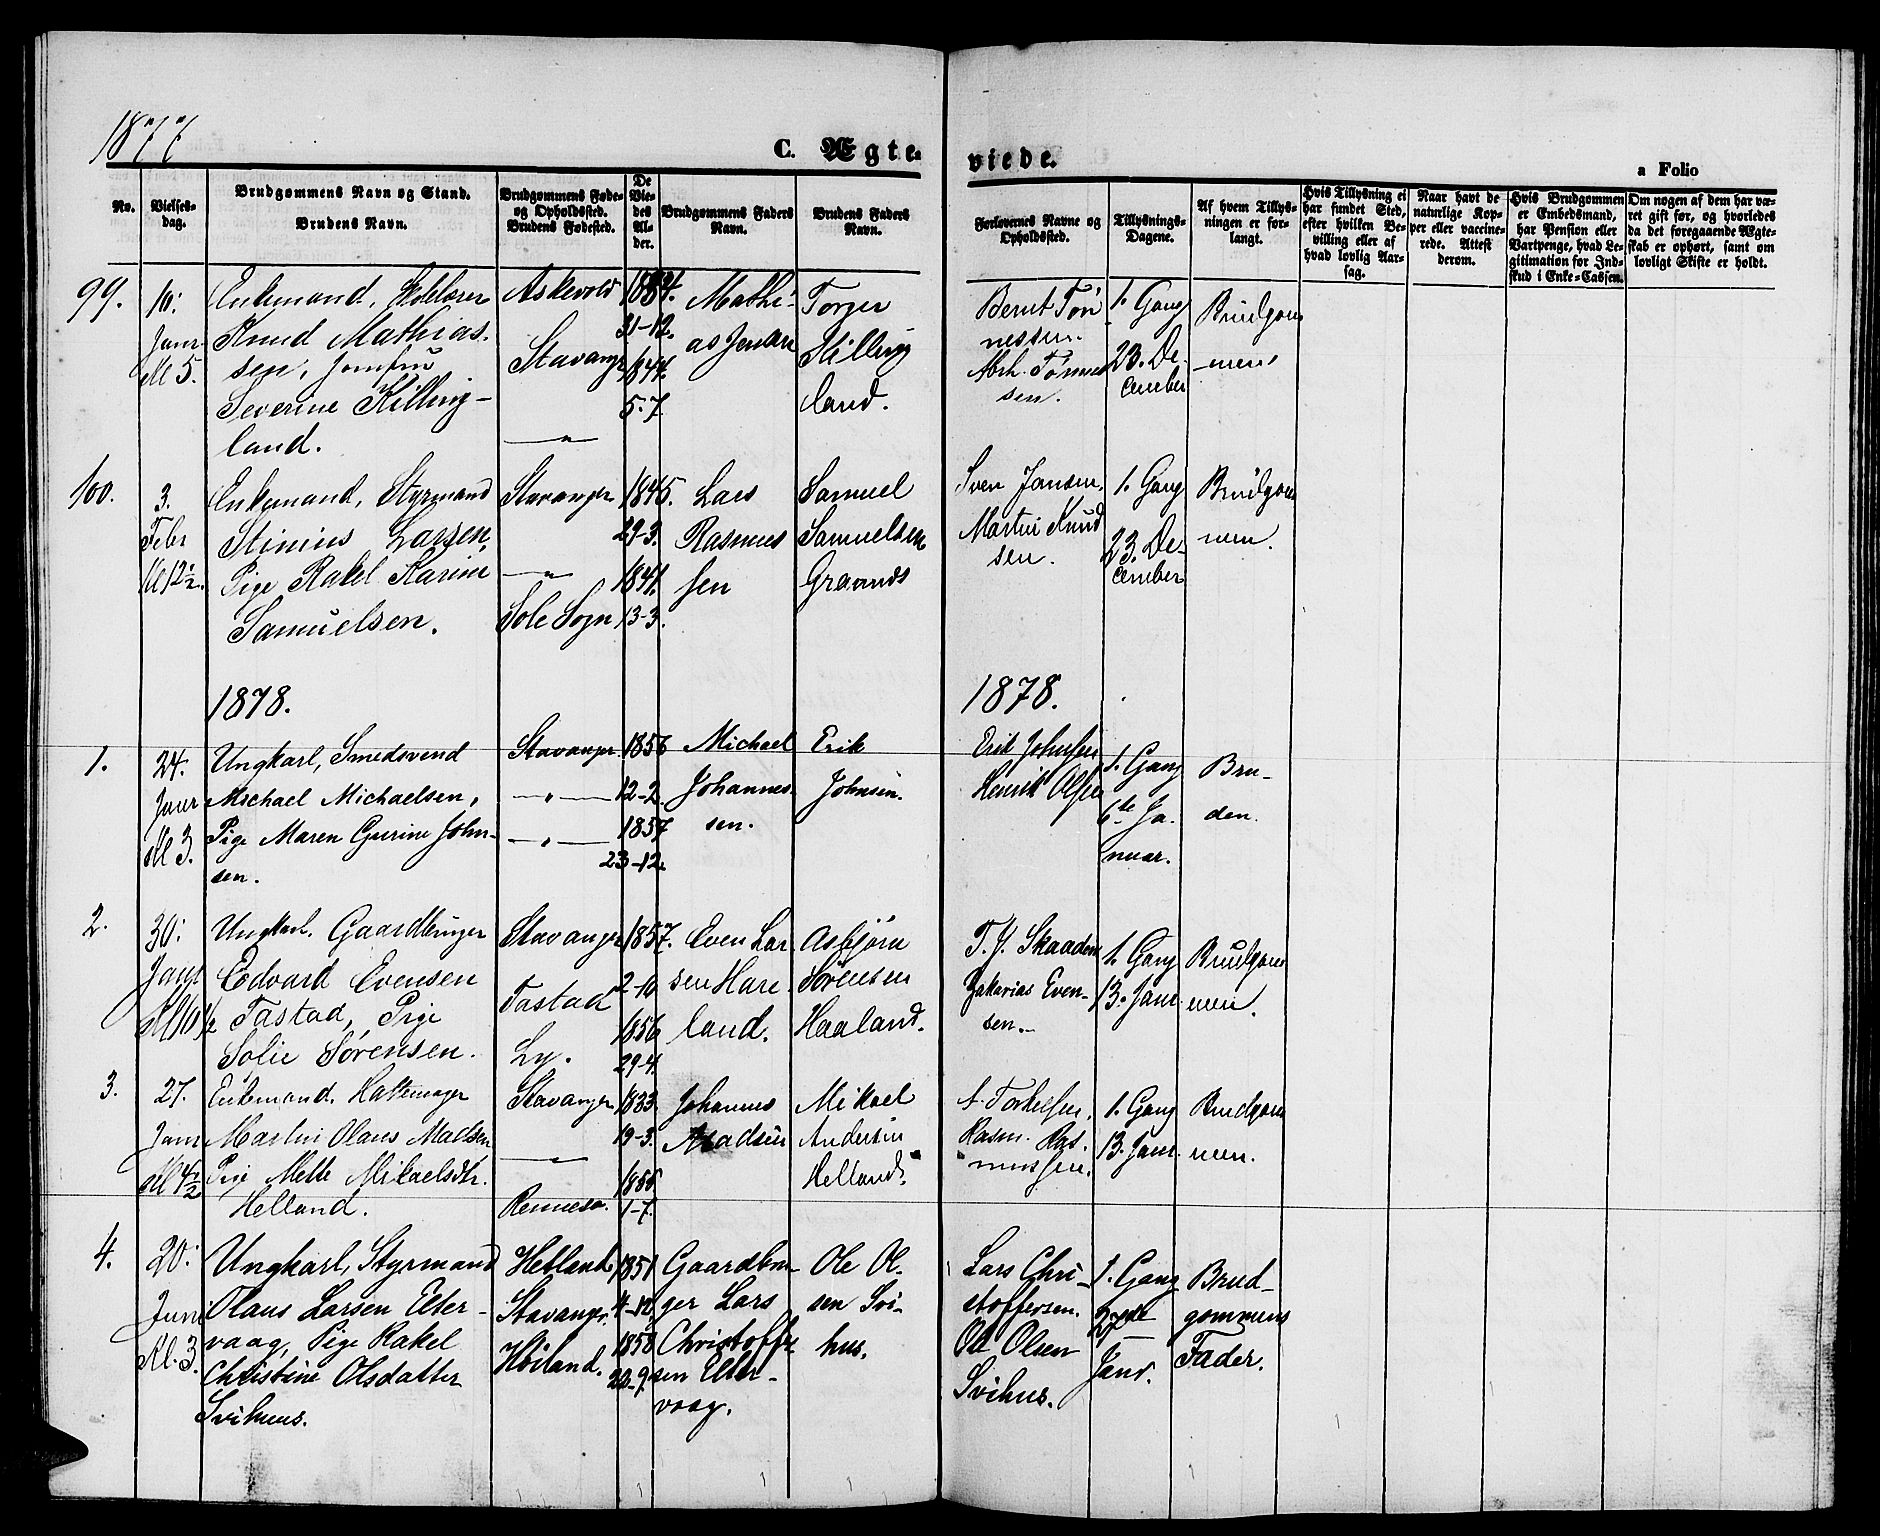 1877
C. Ægte-
viede.
a Folio
No.
Vielses-
dag.
Brudgommens Navn og Stand.
Brudens Navn.
Brudgommens Føde-
og Opholdssted.
Brudens Fødested.
De
Vie-
des
Al-
der.
Brudgommens Faders
Navn.
Brudens Faders
Navn.
Forlovernes Navne og
Opholdssted.
Tillysnings-
Dagene.
Af hvem Tillys-
ningen er for-
langt.
Hvis Tillysning ei
har fundet Sted,
efter hvilken Be-
villing eller af
hvad lovlig Aar-
sag.
Naar havt de
naturlige Kop-
per eller vaccine-
rede. Attest
derom.
Hvis Brudgommen
er Embedsmand,
har Pension eller
Vartpenge, hvad Le-
gitimation for Ind-
skud i Enke-Cassen.
Om nogen af dem har væ-
ret gift før, og hvorledes
da det foregaaende Ægte-
skab er ophørt, samt om
lovligt Skifte er holdt.
99.
10.
Janr
Kl 5.
Enkemand,
Knud Mathias-
sen, Jomfru
Severine Killing-
land.
Askevold
Stavanger
— " —
21-12.
1844.
5-7
Mathi-
as Jensen
Torger
Killing
land.
Bernt Tøn
nessen.
Abrh. Tønnes
sen.
1. Gang
23. De-
cember
Brudgom
-mens
100.
3.
Febr
Kl 12 ½.
Enkemand, Styrmand
Stinius Larsen,
Pige Rakel Karine
Samuelsen.
Stavanger
— " —
Sole Sogn
1845.
29-3.
1841.
13-3.
Lars
Rasmus
sen
Samuel
Samuelsen
Sven Jansen.
Martin Knud
sen.
1. Gang
23. De-
cember
Brudgom
men.
1878.
1878.
1.
24.
Janr
Kl 3.
Ungkarl, Smedsvend
Michael Michaelsen,
Pige Maren Gurine John-
sen.
Stavanger
— " —
— " —
1856
12-2.
1857
23-12.
Michael
Johannes
sen.
Erik
Johnsen.
Erik Johnsen
Henrik Olsen
1. Gang
6te Ja-
nuar.
Bru-
den.
2.
30.
Janr
Kl 10 ½
Ungkarl. Gaardbruger
Edvard Evensen
Tastad, Pige
Sofie Sørensen.
Stavanger
Tastad
Ly.
1857.
2-10
1856
29-4.
Even Lar
sen Hare
land.
Asbjørn
Sørensen
Haaland.
T. J. Skaaden
Zakarias Even-
sen.
1. Gang
13. Janr
Brudgom
men.
3.
27.
Janr
Kl 4 ½
Enkemand. Hattemager
Martin Olaus Madsen
Pige Mette Mikaelsdtr.
Helland.
Stavanger
— " —
Rennesø.
1833
19-3.
1-7.
Johannes
Madsen
Mikael
Andersen
Helland.
A. Torkelsen.
Rasm. Ras-
mussen.
1. Gang
13. Janr
Brudgom
men.
4.
20.
Juni
Kl. 3.
Ungkarl, Styrmand
Olaus Larsen Elter-
vaag, Pige Rakel
Christine Olsdatter
Svihuus.
Hetland.
Stavanger.
Høiland.
1851
4-12.
1858
20-9.
Gaardbru-
ger Lars
Christoffer
sen Elter-
vaag.
Ole Ol-
sen Svi-
hus.
Lars Chri-
stoffersen.
Ole Olsen
Svihus.
1. Gang
27de
Janr.
Brud-
gommens
Fader.